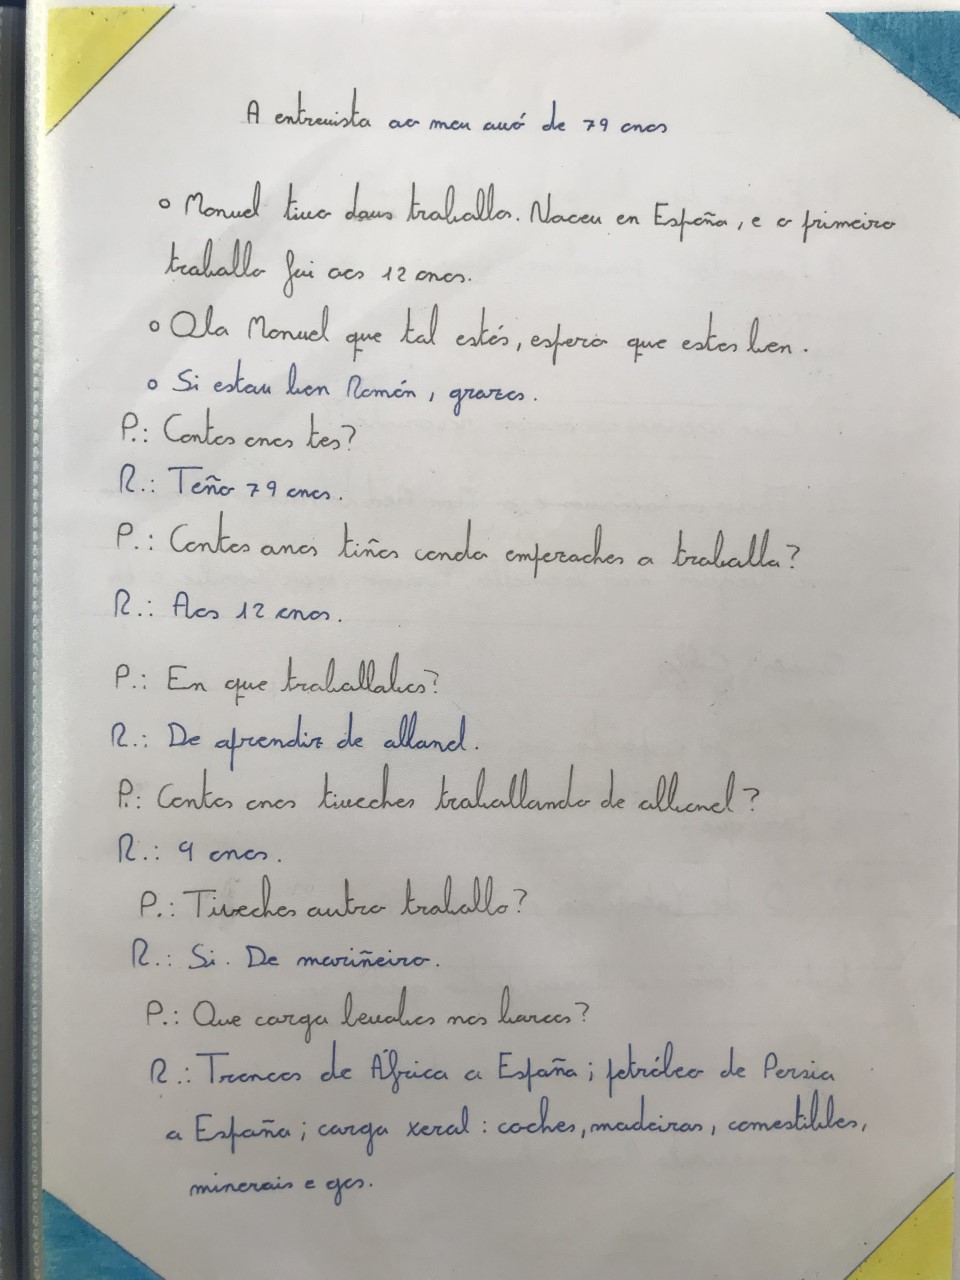 A entrevista ao meu avó de 79 anos
Manuel tivo dous traballos. Naceu en España, e o primeiro
traballo foi aos 12 anos.
Ola Manuel que tal estás, espero que estes ben.
Si estou ben Román, grazas.
P.: Cantos anos tes?
R.: Teño 79 anos.
P.: Cantos anos tiñas cando empezaches a traballa?
R.: Aos 12 anos.
P.: En que traballabas?
R.: De aprendiz de albanel.
P.: Cantos anos tiveches traballando de albanel?
R.: 9 anos.
P.: Tiveches outro traballo?
R.: Si. De mariñeiro.
P.: Que carga levabas nos barcos?
R.: Troncos de África a España; petróleo de Persia
a España; carga xeral: coches, madeiras, comestibles,
minerais e gas.